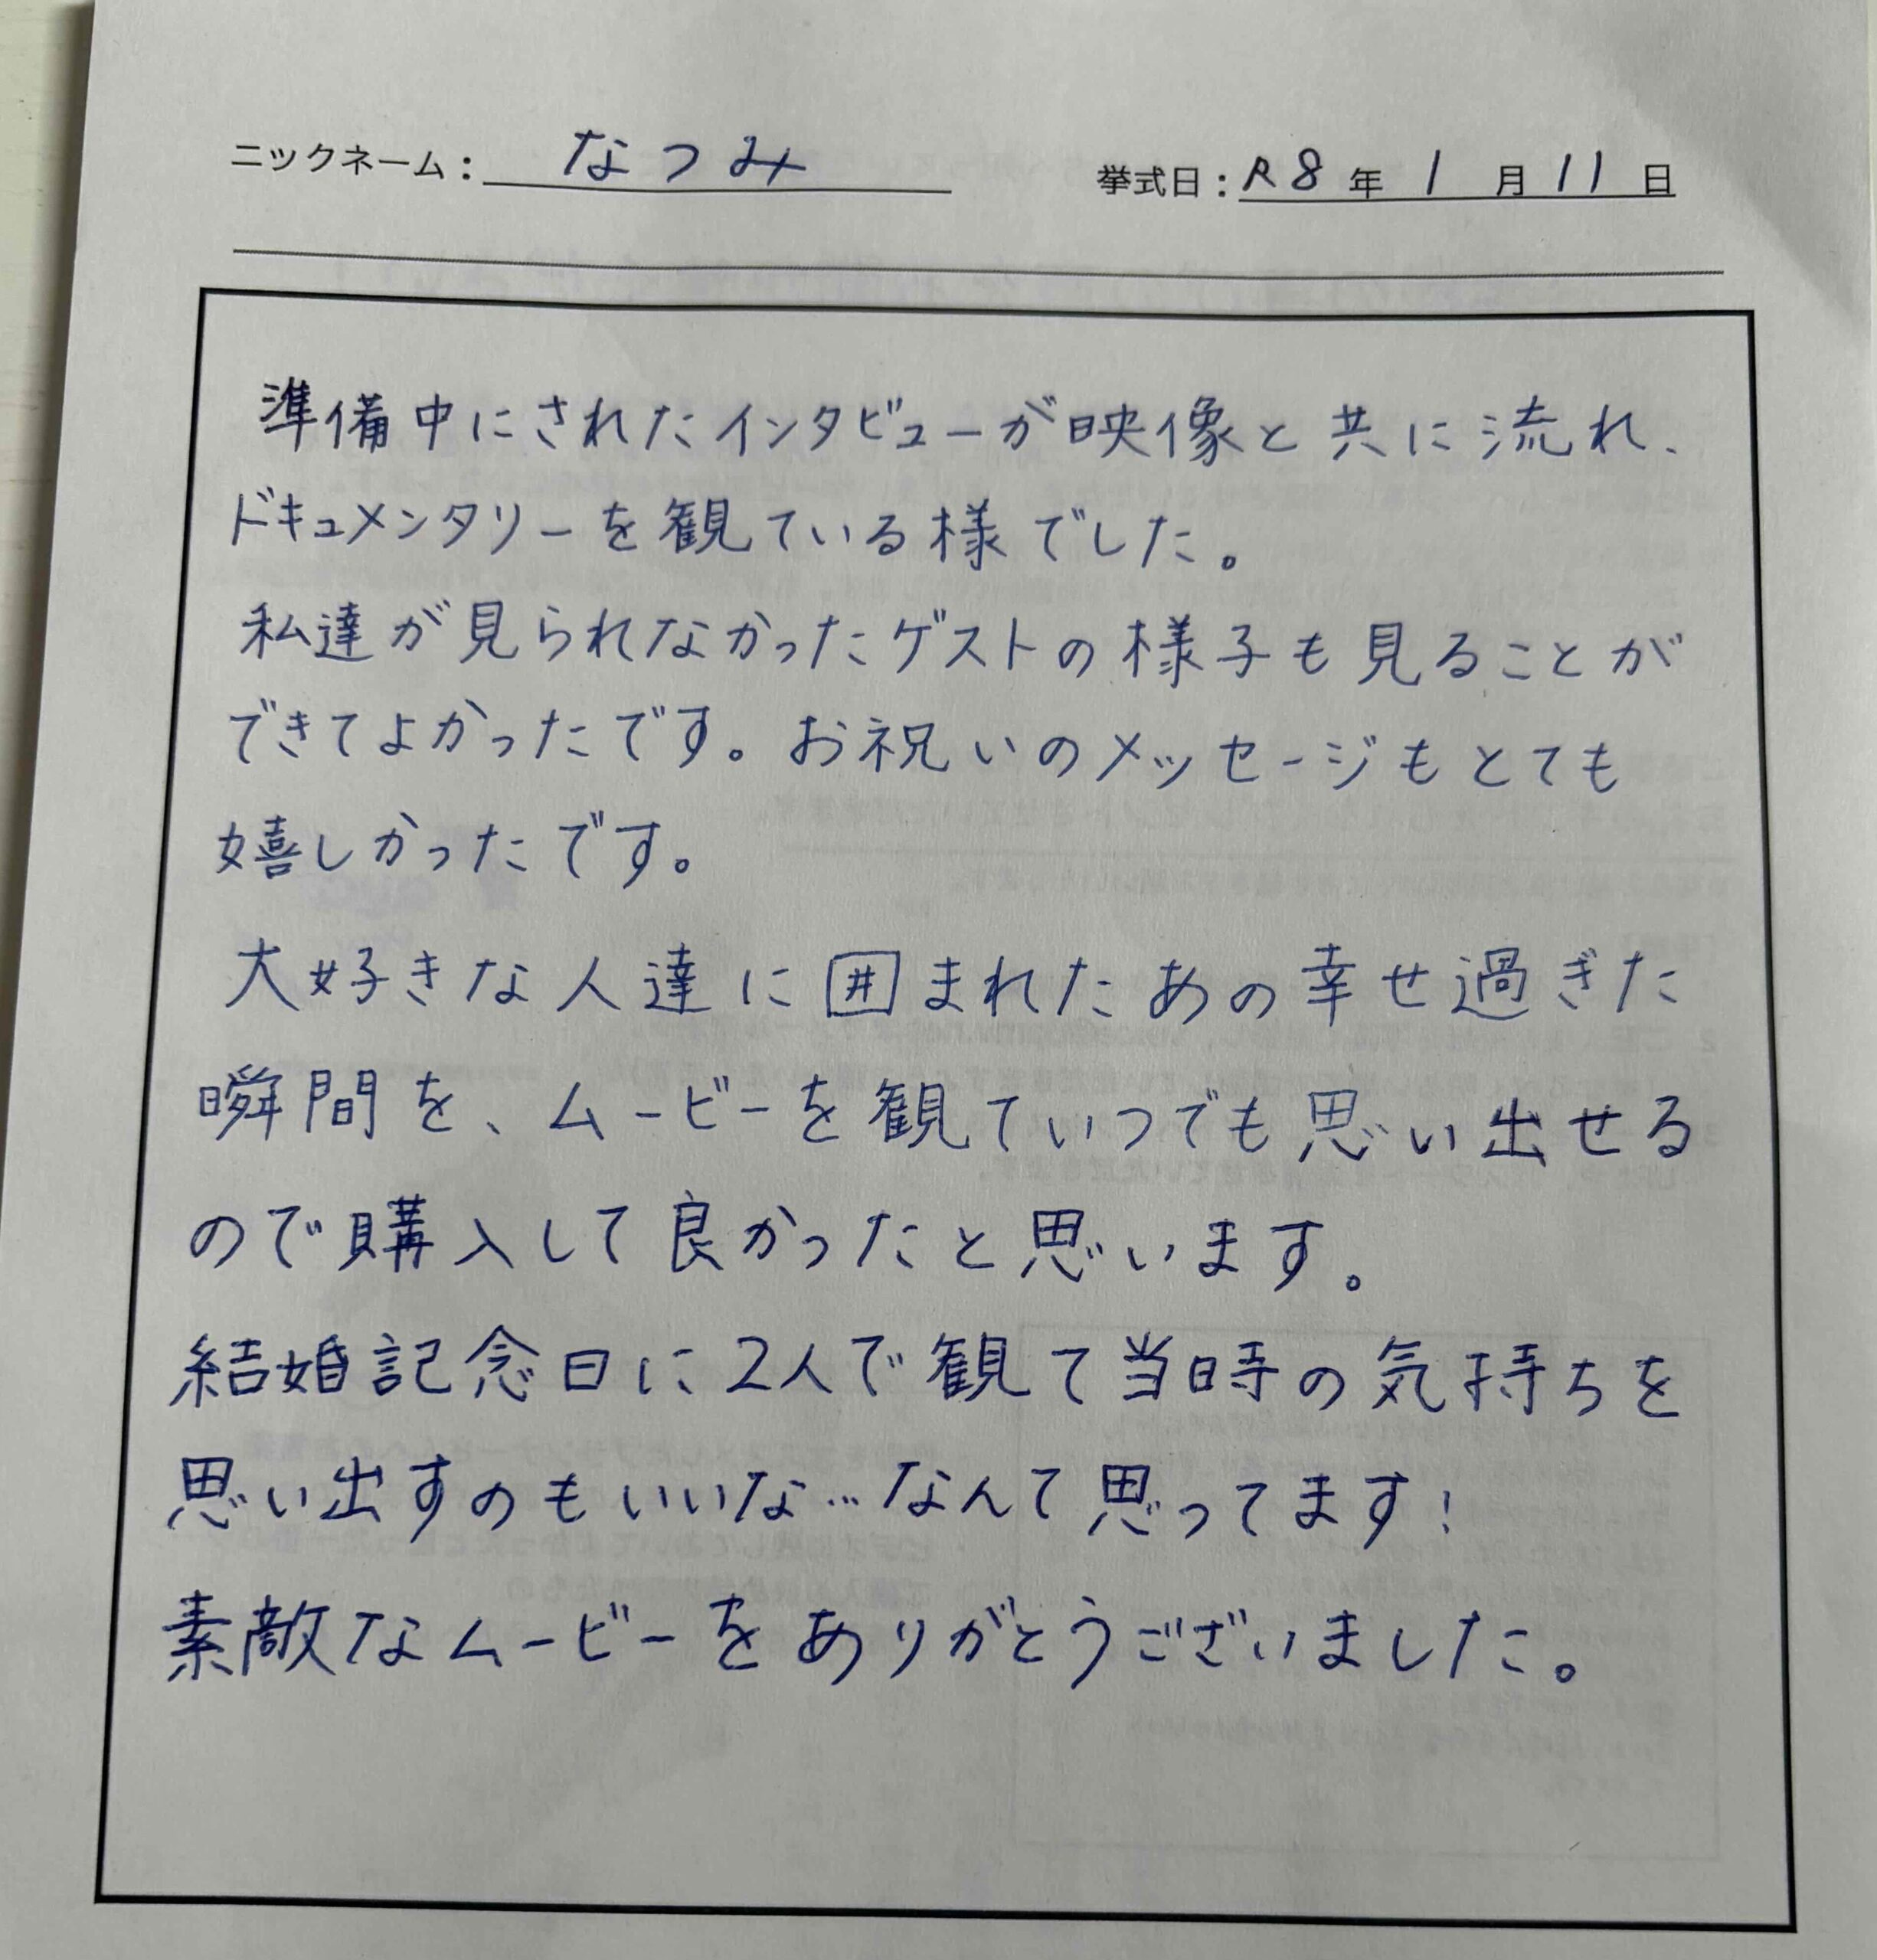 ニックネーム： なつみ 挙式日：R8年1月11日
準備中にされたインタビューが映像と共に流れ、
ドキュメンタリーを観ている様でした。
私達が見られなかったゲストの様子も見ることが
できてよかったです。お祝いのメッセージもとても
嬉しかったです。
大好きな人達に囲まれたあの幸せ過ぎた
瞬間を、ムービーを観ていつでも思い出せる
ので購入して良かったと思います。
結婚記念日に2人で観て当時の気持ちを
思い出すのもいいな…なんて思ってます！
素敵なムービーをありがとうございました。